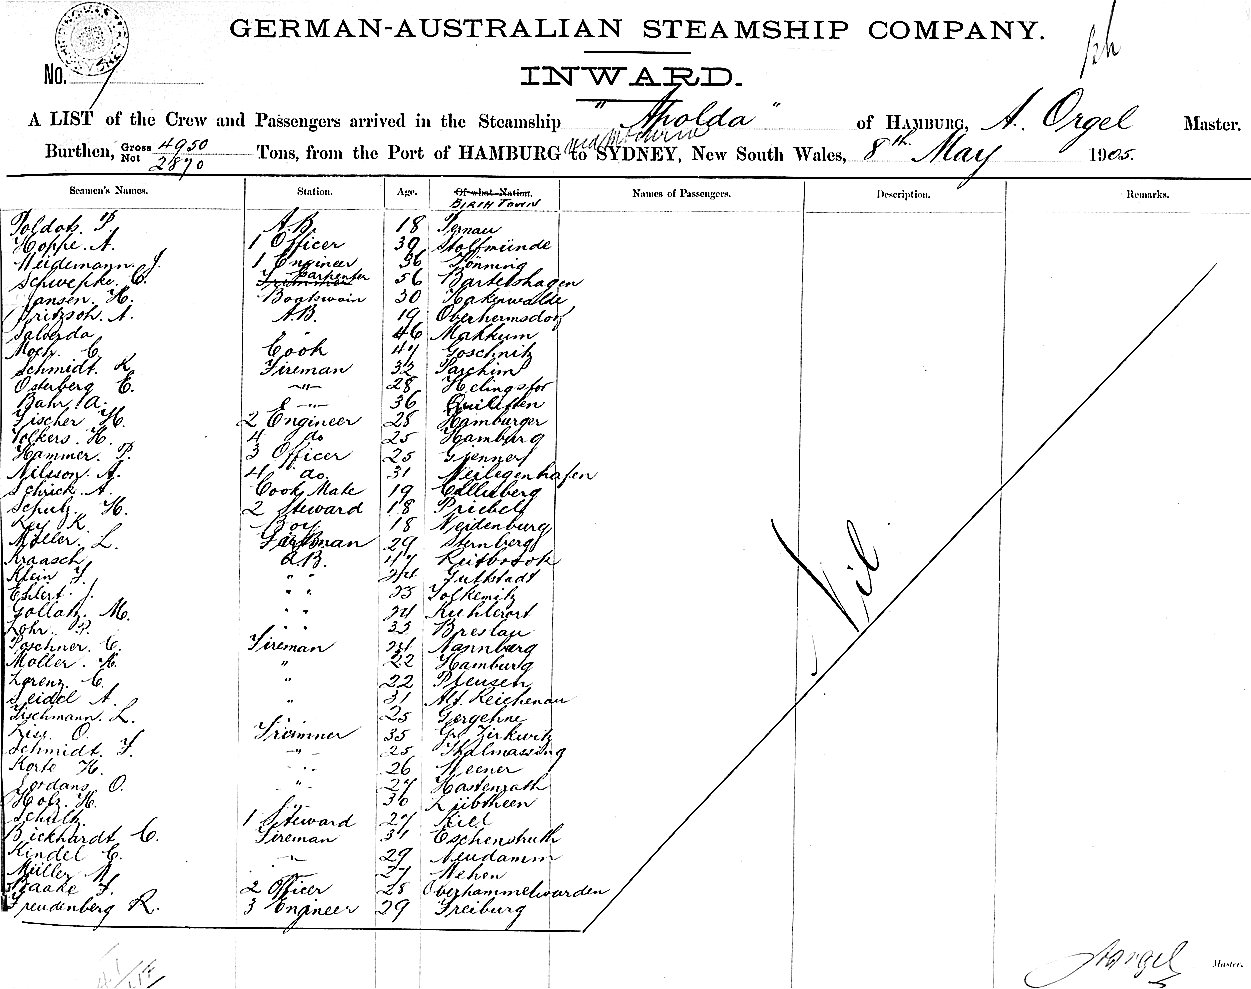 GERMAN-AUSTRALIAN STEAMSHIP COMPANY.
No.
INWARD.
A LIST of the Crew and Passengers arrived in the Steamship "Apolda" of HAMBURG, A. Orgel Master.
Burthen, Gross 4950 Net 2870 Tons, from the Port of HAMBURG to SYDNEY, New South Wales, 8th May 1905.
Seamen's Names. Station. Age. Of what Nation. BIRTH TOWN Names of Passengers. Description. Remarks.
P. A.B. 18 Pernau
Hoppe. A. 1 Officer 39 Stolpmünde
Weidemann. J. 1 Engineer 36 Tönning
Schwepke. C. Trimmer Carpenter 56 Bartelshagen
Jansen. H. Boatswain 30 Hakenwalde
Fritzsch. A. A.B. 19 Oberhermsdorf
Salverda " 46 Makkum
C. Cook 47 Goschnitz
Schmidt. R. Fireman 32 Parchim
Osterberg E. " 28 Helingsfor
Bahr. A. " 36
Fischer H. 2 Engineer 28 Hamburger
Volkers. H. 4 do 25 Hamburg
Hammer. P. 3 Officer 25 Gjenner
Nilsson. A. 4 do 31 Heilegenhafen
Schrick. A. Cook Mate 19 Callenberg
Schulz. H. 2 Steward 18 Priebel
Ley R. Boy 18 Neidenburg
Möller. L. 29 Sternberg
Kraasch A.B. Reitbrook
Klein F. " " 24 Gutstadt
Ehlert. J. " " 23 Tolkemitz
Gollatz. M. " " 24 Ruhlerort
Lohr. P. " " 33 Breslau
Paschner. C. Fireman Nannburg
Moller. H. " 22 Hamburg
Lorenz. C. " 22 Pleusen
Seidel A. " 31 Alt. Reichenau
Tischmann. L. 25 Gergehne
O. Trimmer 35 Gr. Zirkwitz
Schmidt. F. " 25 Thalmassing
Korte H. " 26 Weener
Jordans O. " 27 Hastenrath
Holz. H. 36 Lübtheen
Schultz. 1 Steward 27 Kiel
Bickhardt. C. Fireman 31 Eschenstruth
Kindel C. " 29 Neudamm
Müller W. 27 Wehen
Braake F. 2 Officer 28 Overhammelwarden
Freudenberg R. 3 Engineer 29 Freiburg
Nil
A Orgel Master.